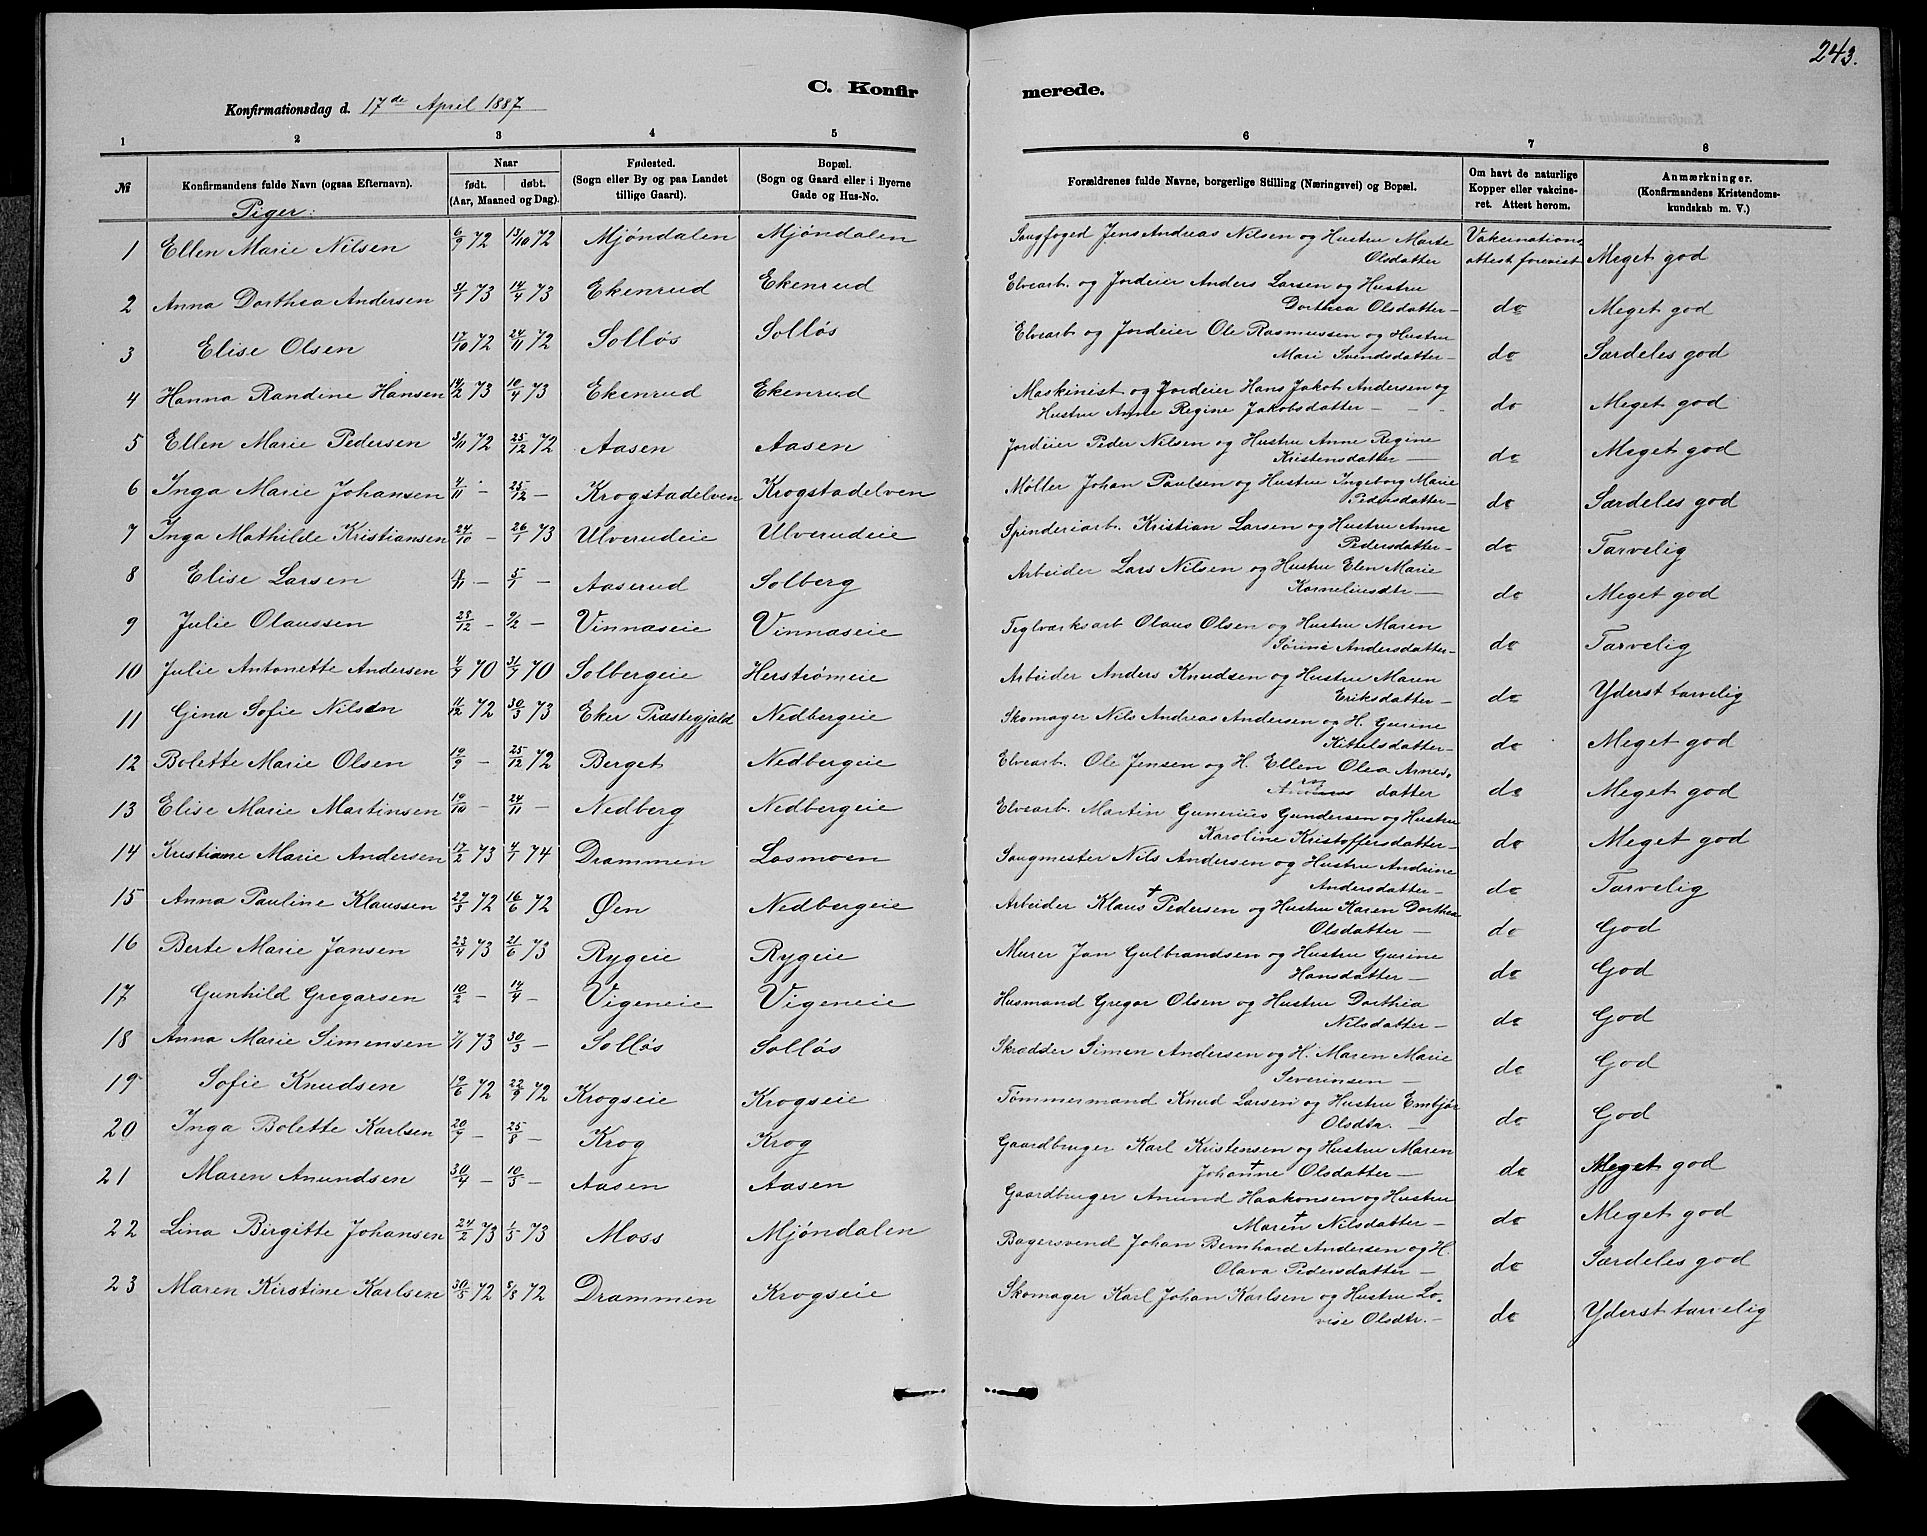 243.
C. Konfirmerede.
Konfirmationsdag d. 17de April 1887
1 2 3 4 5 6 7 8
№ Konfirmandens fulde Navn (ogsaa Efternavn). Naar født. døbt. (Aar, Maaned og Dag). Fødested. (Sogn eller By og paa Landet tillige Gaard). Bopæl. (Sogn og Gaard eller i Byerne Gade og Hus-No. Forældrenes fulde Navne, borgerlige Stilling (Næringsvei) og Bopæl. Om havt de naturlige Kopper eller vakcineret. Attest herom. Anmærkninger. (Konfirmandens Kristendomskundskab m. V.)
Piger:
1 Ellen Marie Nilsen 6/9 72 13/10 72 Mjöndalen Mjöndalen Saugfoged Jens Andreas Nilsen og Hustru Marte Olsdatter Vakcinations attest forevist Meget god
2 Anna Dorthea Andersen 31/1 73 14/4 73 Ekenrud Ekenrud Elvearb. og Jordeier Anders Larsen og Hustru Dorthea Olsdatter — do Meget god
3 Elise Olsen 17/10 72 24/11 72 Solløs Solløs Elvearb og Jordeier Ole Rasmussen og Hustru Mari Svendsdatter — do Særdeles god
4 Hanna Randine Hansen 14/2 73 10/4 73 Ekenrud Ekenrud Maskinist og Jordeier Hans Jakob Andersen og Hustru Anne Regine Jakobsdatter — do Meget god
5 Ellen Marie Pedersen 3/11 72 25/12 72 Aasen Aasen Jordeier Peder Nilsen og Hustru Anne Regine Kristensdatter — do Meget god
6 Inga Marie Johansen 4/11 - 25/12 — Krogstadelven Krogstadelven Møller Johan Paulsen og Hustru Ingeborg Marie Pedersdatter — do Særdeles god
7 Inga Mathilde Kristiansen 24/10 — 26/1 73 Ulverudeie Ulverudeie Spinderiarb. Kristian Larsen og Hustru Anne Pedersdatter — do Tarvelig
8 Elise Larsen 18/11 — 5/1 — Aaserud Solberg Arbeider Lars Nilsen og Hustru Elen Marie Korneliusdtr — do Meget god
9 Julie Olaussen 23/12 — 9/2 — Vinnaseie Vinnaseie Teglværksarb Olaus Olsen og Hustru Maren Sørine Andersdatter — do Tarvelig
10 Julie Antonette Andersen 4/7 70 31/7 70 Solbergeie Herstrømeie Arbeider Anders Knudsen og Hustru Maren Eriksdatter — do Yderst tarvelig
11 Gina Sofie Nilsen 11/12 72 30/3 73 Eker Præstegjæld Nedbergeie Skomager Nils Andreas Andersen og H. Gurine Kittelsdatter — do Meget god
12 Bolette Marie Olsen 19/9 — 25/12 72 Berget Nedbergeie Elvearb. Ole Jensen og H. Ellen Olea Arnesdatter do Meget god
13 Elise Marie Martinsen 19/10 — 24/11 — Nedberg Nedbergeie Elvearb. Martin Gunerius Gundersen og Hustru Karoline Kristoffersdatter — do Meget god
14 Kristiane Marie Andersen 17/2 73 4/1 74 Drammen Losmoen Saugmester Nils Andersen og Hustru Andrine Andersdatter — do Tarvelig
15 Anna Pauline Klaussen 29/3 72 16/6 72 Øen Nedbergeie Arbeider Klaus + Pedersen og Hustru Karen Dorthea Olsdatter — do God
16 Berte Marie Jansen 23/4 73 21/6 73 Rygeie Rygeie Murer Jan Gulbrandsen og Hustru Gurine Hansdatter — do God
17 Gunhild Gregarsen 10/2 — 14/4 — Vigeneie Vigeneie Husmand Gregar Olsen og Hustru Dorthea Nilsdatter — do God
18 Anna Marie Simensen 7/1 73 30/3 — Solløs Solløs Skrædder Simen Andersen og H. Maren Marie Severinsen — do God
19 Sofie Knudsen 19/6 72 22/9 72 Krogseie Krogseie Tømmermand Knud Larsen og Hustru Embjør Olsdtr. — do God
20 Inga Bolette Karlsen 20/7 — 25/8 — Krog Krog Gaardbruger Karl Kristensen og Hustru Maren Johanne + Olsdatter — do Meget god
21 Maren Anundsen 30/4 — 10/5 — Aasen Aasen Gaardbruger Anund Haakonsen og Hustru Maren + Nilsdatter — do Meget god
22 Lina Birgitte Johansen 24/2 73 1/5 73 Moss Mjöndalen Bagersvend Johan Bernhard Andersen og H. Olava Pedersdatter — do Særdeles god
23 Maren Kirstine Karlsen 30/5 72 8/8 72 Drammen Krogseie Skomager Karl Johan Karlsen og Hustru Lovise Olsdtr. — do Yderst tarvelig